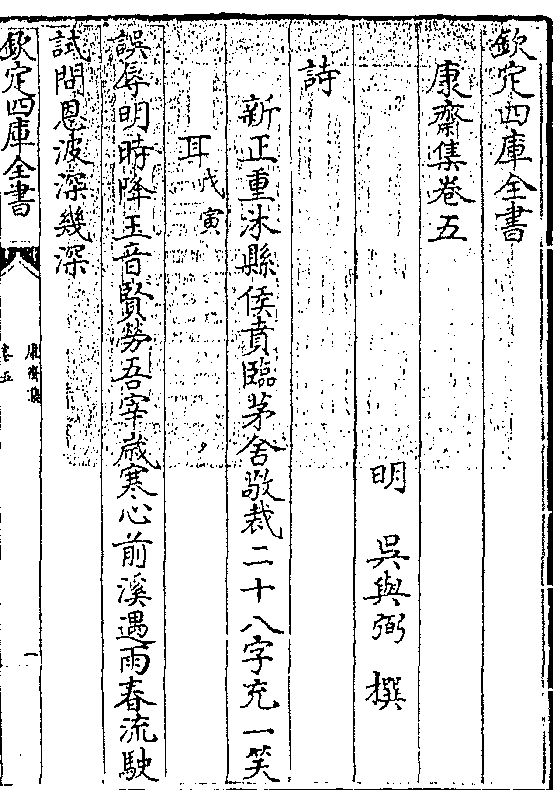 欽定四庫全書
康齋集卷五
明 吳與弼 撰
詩
新正重冰縣侯賁臨茅舍敬裁二十八字充一笑
耳戊寅
誤辱明時降玉音賢勞吾宰歲寒心前溪遇雨春流駛
試問恩波深幾深
欽定四庫全書
康齋集
卷五
一